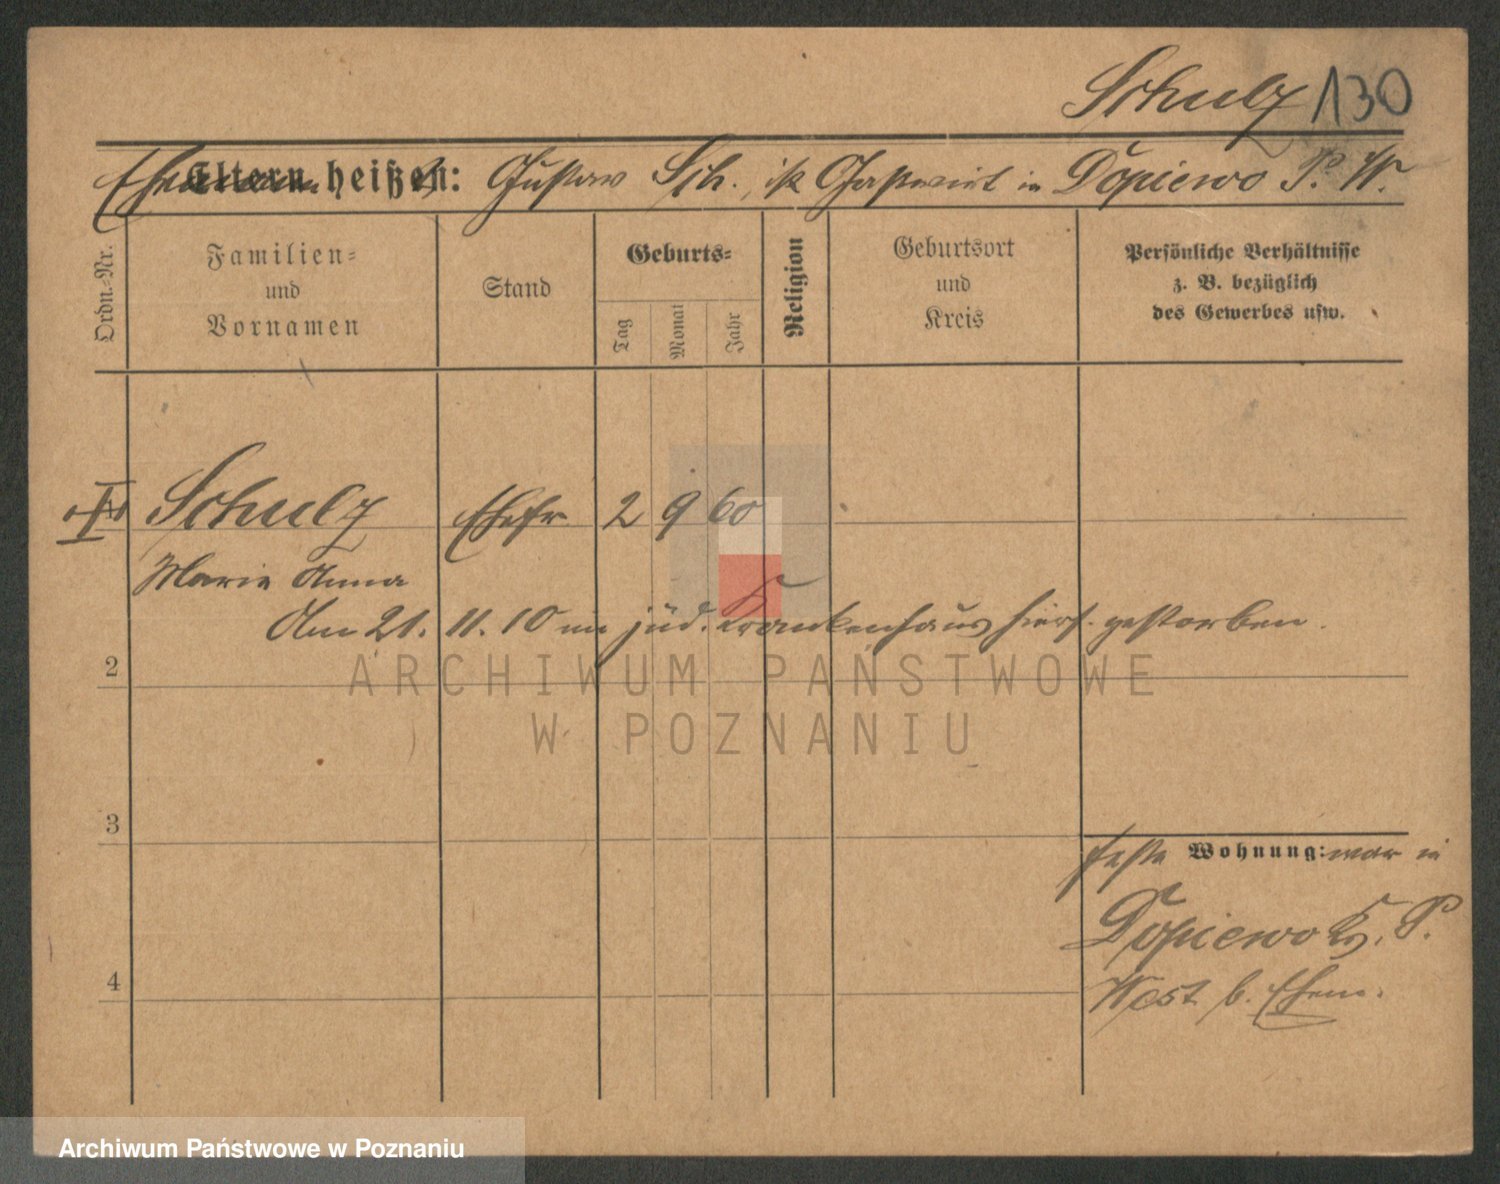 Schulz 130
Ehemann heißt: Gustav Sch., ist Gastwirt in Dopiewo P. W.
Ordn.-Nr.
Familien-
und
Vornamen
Stand
Geburts-
Tag
Monat
Jahr
Religion
Geburtsort
und
Kreis
Persönliche Verhältnisse
z. B. bezüglich
des Gewerbes usw.
Schulz Ehefr 2 9 60
Marie Anna
Am 21. 11. 10 im jüd. Krankenhaus hiers. gestorben.
2
ARCHIWUM PAŃSTWOWE
W POZNANIU
3
feste Wohnung: war in
Dopiewo Kr. P.
West b. Ehem.
4
Archiwum Państwowe w Poznaniu